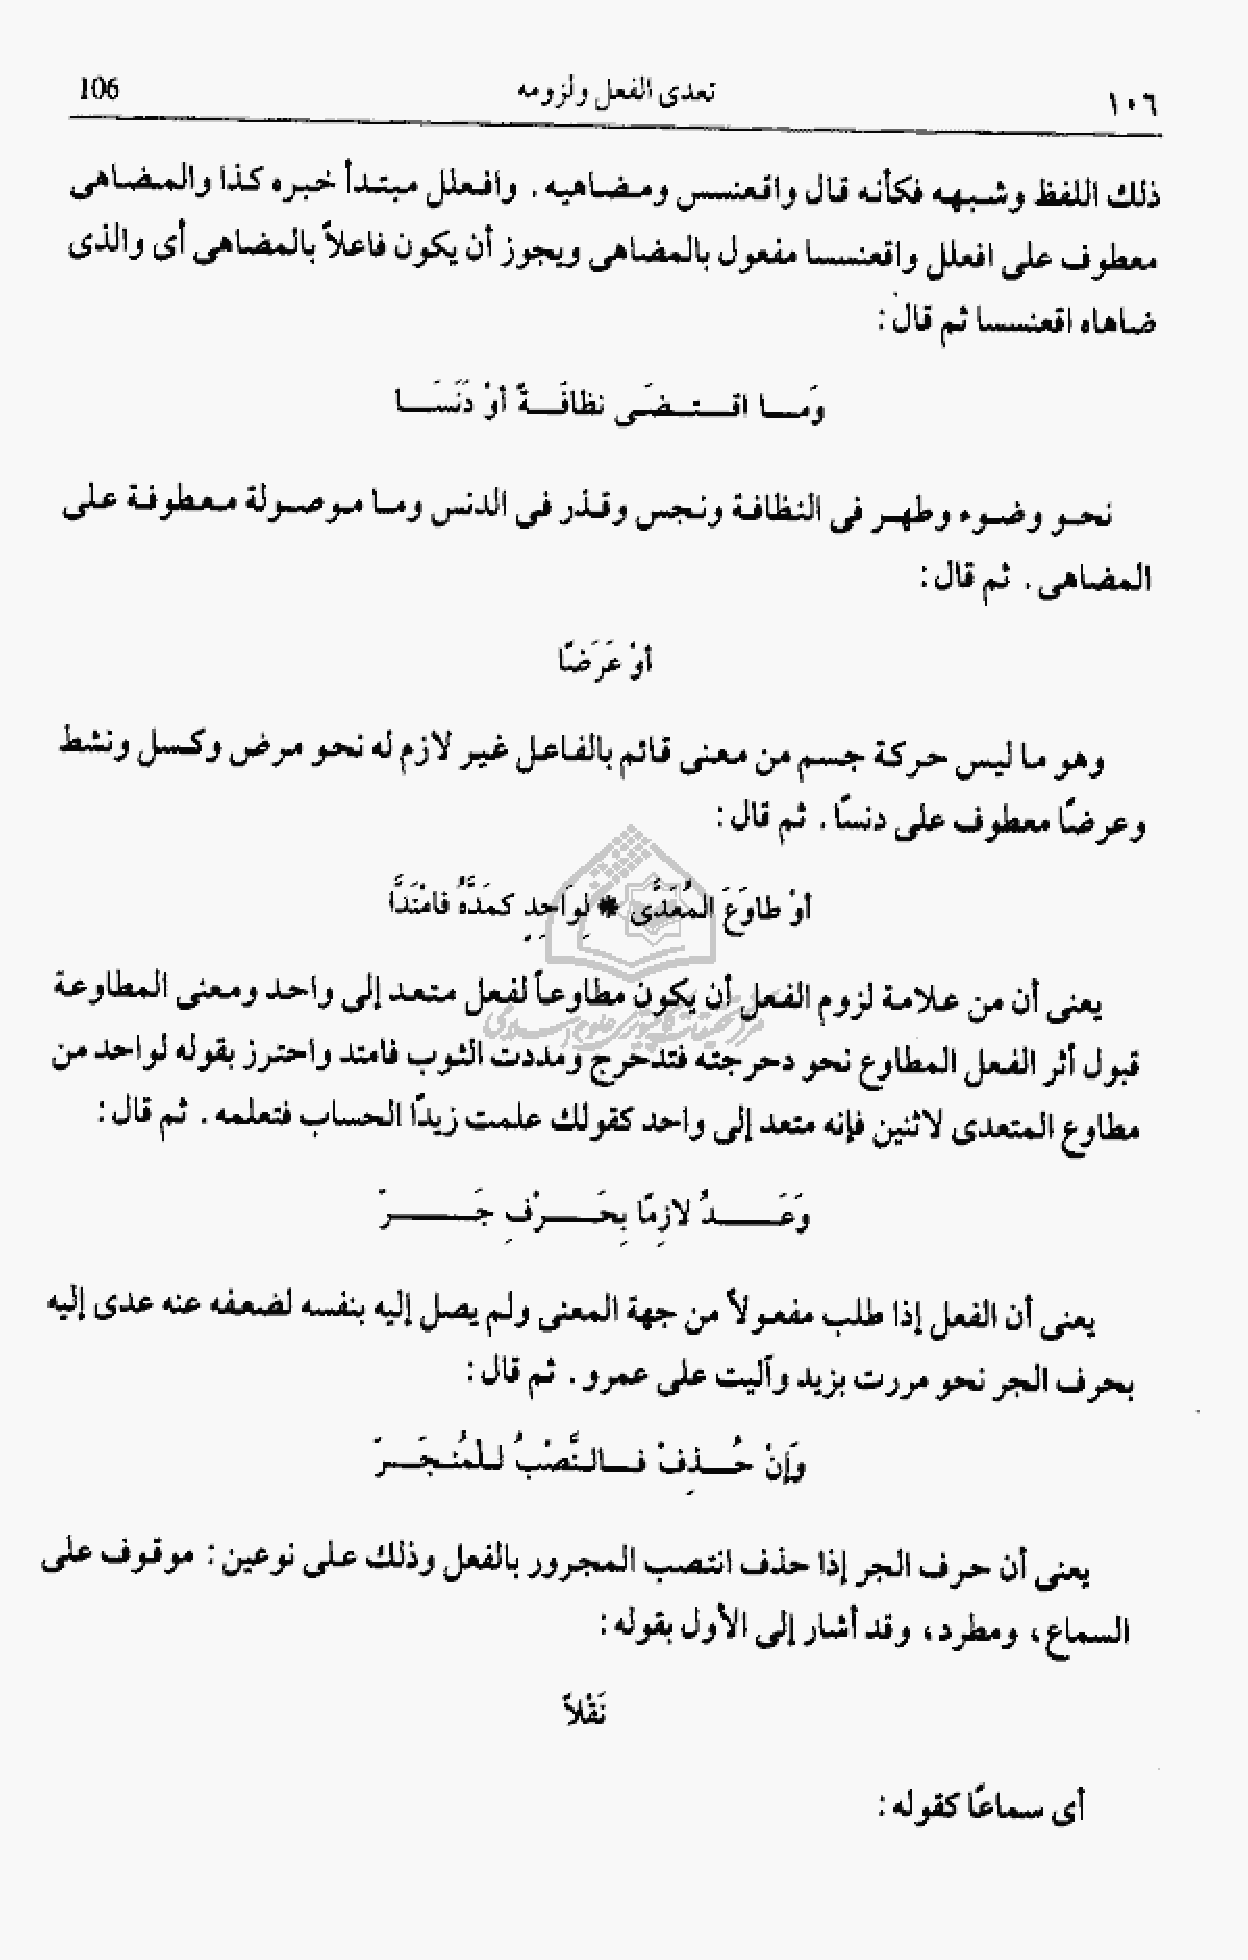 ١٠٦ تعدى الفعل ولزومه 106
ذلك اللفظ وشبهه فكأنه قال واقعنسس ومضاهيه . وافعلل مبتدأ خبره كذا والمضاهى
معطوف على افعلل واقعنسسا مفعول بالمضاهى ويجوز أن يكون فاعلاً بالمضاهى أى والذى
ضاهاه اقعنسسا ثم قال :
وَمـا اقـتـضَـى نظافَـةً أوْ دَنَسَـا
نحو وضوء وطهر فى النظافة ونجس وقذر فى الدنس وما موصولة معطوفة على
المضاهى . ثم قال :
أوْ عَرَضًا
وهو ما ليس حركة جسم من معنى قائم بالفاعل غير لازم له نحو مرض وكسل ونشط
وعرضًا معطوف على دنسًا . ثم قال :
أوْ طاوَعَ المُعَدَّى * لِوَاحِدٍ كمَدَّهُ فامْتَدَّا
يعنى أن من علامة لزوم الفعل أن يكون مطاوعاً لفعل متعد إلى واحد ومعنى المطاوعة
قبول أثر الفعل المطاوع نحو دحرجته فتدحرج ومددت الثوب فامتد واحترز بقوله لواحد من
مطاوع المتعدى لاثنين فإنه متعد إلى واحد كقولك علمت زيدًا الحساب فتعلمه . ثم قال :
وَعَـدُّ لازِمًا بِحَـرْفِ جَـرّ
يعنى أن الفعل إذا طلب مفعولاً من جهة المعنى ولم يصل إليه بنفسه لضعفه عنه عدى إليه
بحرف الجر نحو مررت بزيد وآليت على عمرو . ثم قال :
وَإنْ حُـذِفْ فـالنَّصْبُ لـلْمُنـجَـرّ
يعنى أن حرف الجر إذا حذف انتصب المجرور بالفعل وذلك على نوعين : موقوف على
السماع ، ومطرد ، وقد أشار إلى الأول بقوله :
نَقْلاً
أى سماعًا كقوله :